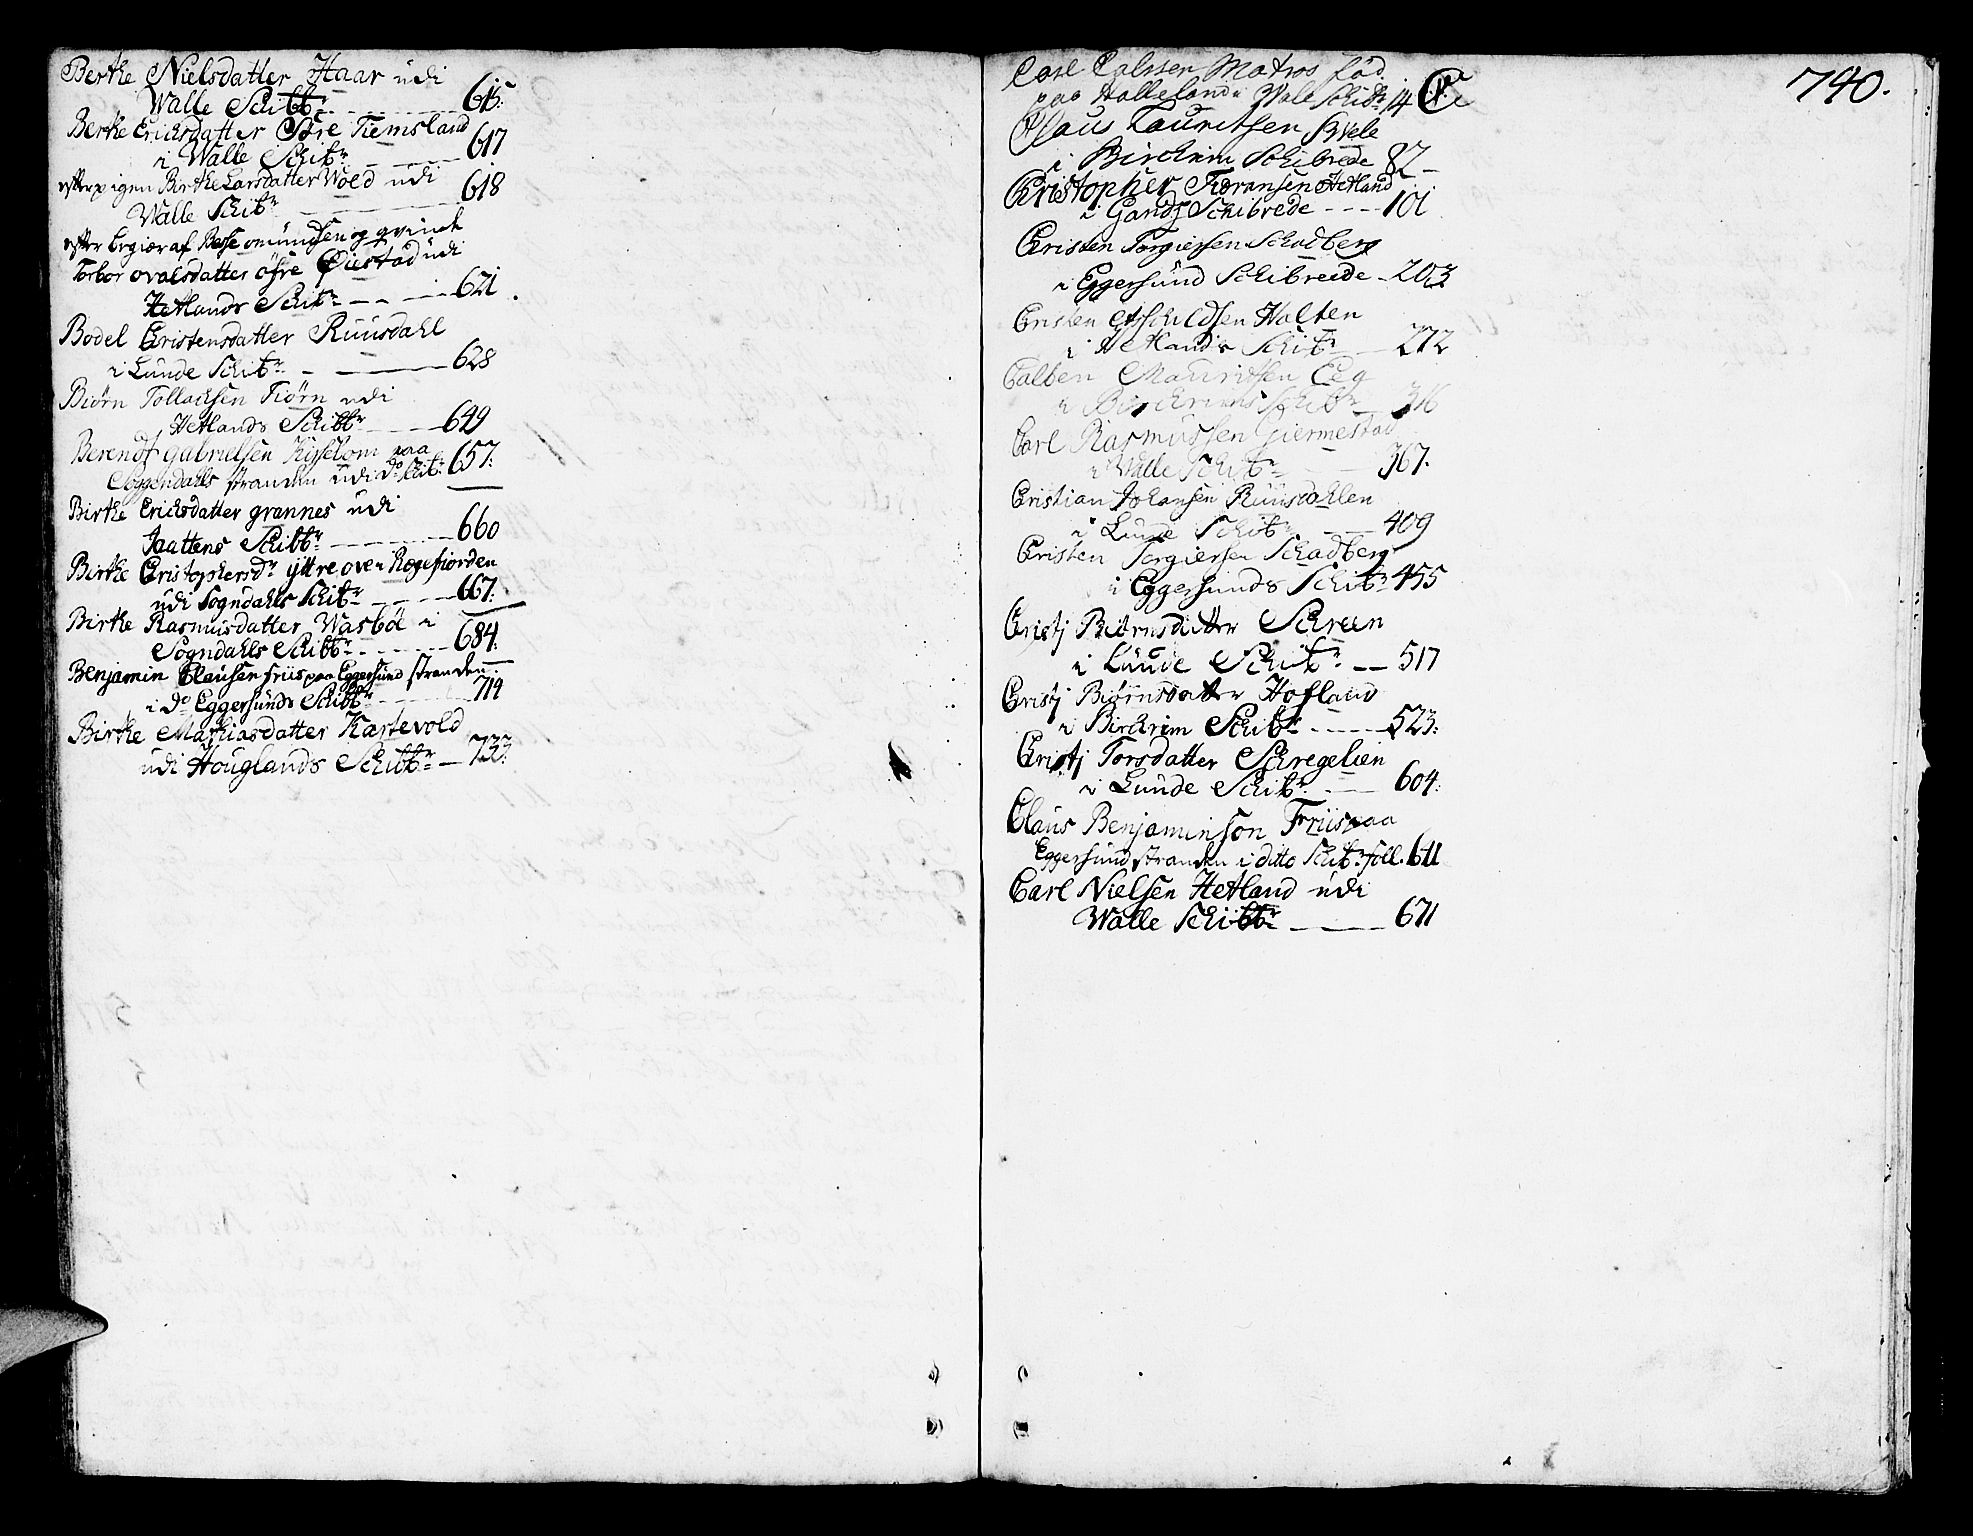 Berthe Nielsdatter Haar udi
Walle Schibbr 615:
Berthe Ericksdatter Søre Tiemsland
i Walle Schibr 617
efter pigen Birthe Larsdatter Wold udi
Walle Schibr 618
efter
Torbor øfre Øiestad udi
Hetlands Schibr 621
Bodel Christensdatter Ruusdahl
i Lunde Schibr 628
Biørn Tollachsen Tiørn udi
Hetlands Schibbr 649
Berendt Gabrielsen paa
Soggendahls stranden udi do Schib: 657:
Birthe Ericksdatter grannes udi
Jaattens Schibbr 660
Birthe Christophersdr yttre over Rægefiorden
udi Sogndahls Schibr 667:
Birthe Rasmusdatter Wasbøe i
Sogndahls Schibbr 684:
Benjamin Clausen Friis paa Eggersund stranden
i do Eggersunds Schibbr 714
Birthe Mathiasdatter Kartevold
udi Houglands Schibbr 733:
740.
C
Carl Calssen Matros fød
paa Walle Schibr 14
Claus Lauritsen
i Birchrim Schibrede 82
Christopher Hetland
i Gands Schibrede 101
Christen Torgiersen Schadberg
i Eggersund Schibreede 203
Cristen Aschildsen Halten
i Hetlands Schibr 272
Calben Mauritsen Eeg
i Birchrims Schibr 316
Carl Rasmussen Giermestad
i Walle Schibr 367.
Cristian Johansen Ruusdahlen
i Lunde Schibr 409
Christen Torgiersen Schadberg
i Eggersunds Schibr 455
Christj Biørnsdatter Schreen
i Lunde Schibr 517
Christj Biørnsdatter Hofland
i Birchrim Schibr 523:
Christj Torsdatter Schregelien
i Lunde Schibr 604:
Claus Benjaminson Friis paa
Eggersund stranden i ditto Schibr foll. 641
Carl Nielsen Hetland udi
Walle Schibbr 671